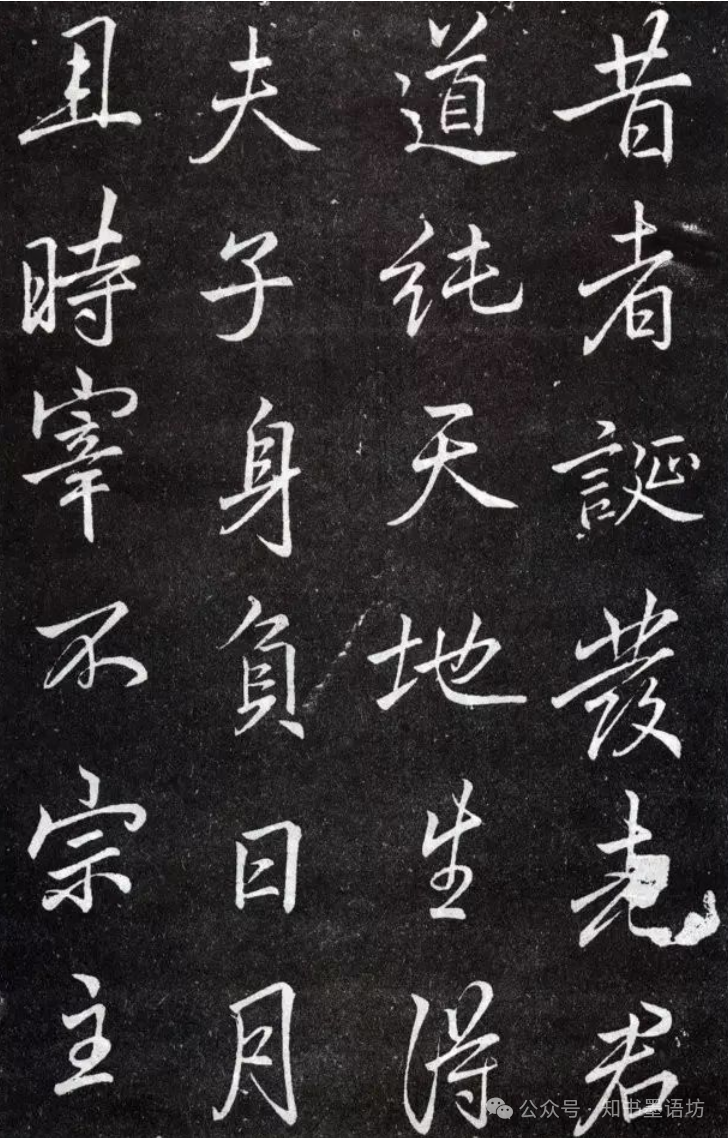 昔者誕發老君
道純天地生得
夫子身負日月
且時宰不宗主
公众号 · 知书墨语坊